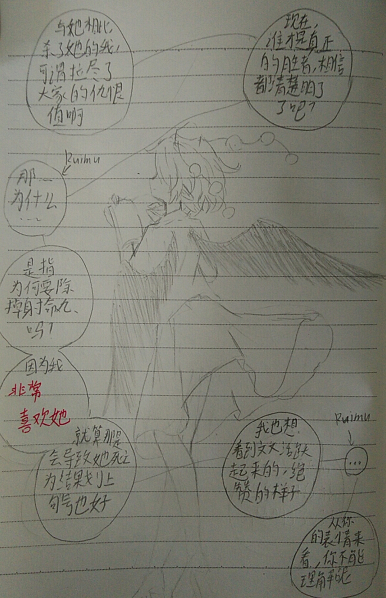 现在,
谁才是真正
的胜者,相信
都清楚明了
了吧?
与她相比
杀了她的我,
可谓拉尽了
大家的仇恨
值啊
Ruimu
那…
为什么
…
是指
为何要除
掉射命丸、
吗?
因为我
非常
喜欢她
就算那
会导致她死亡
为结果划上
句号也好
我也想
看到文文活跃
起来的,绝
赞的样子
Ruimu
…
从你
的表情来
看,你不能
理解呢